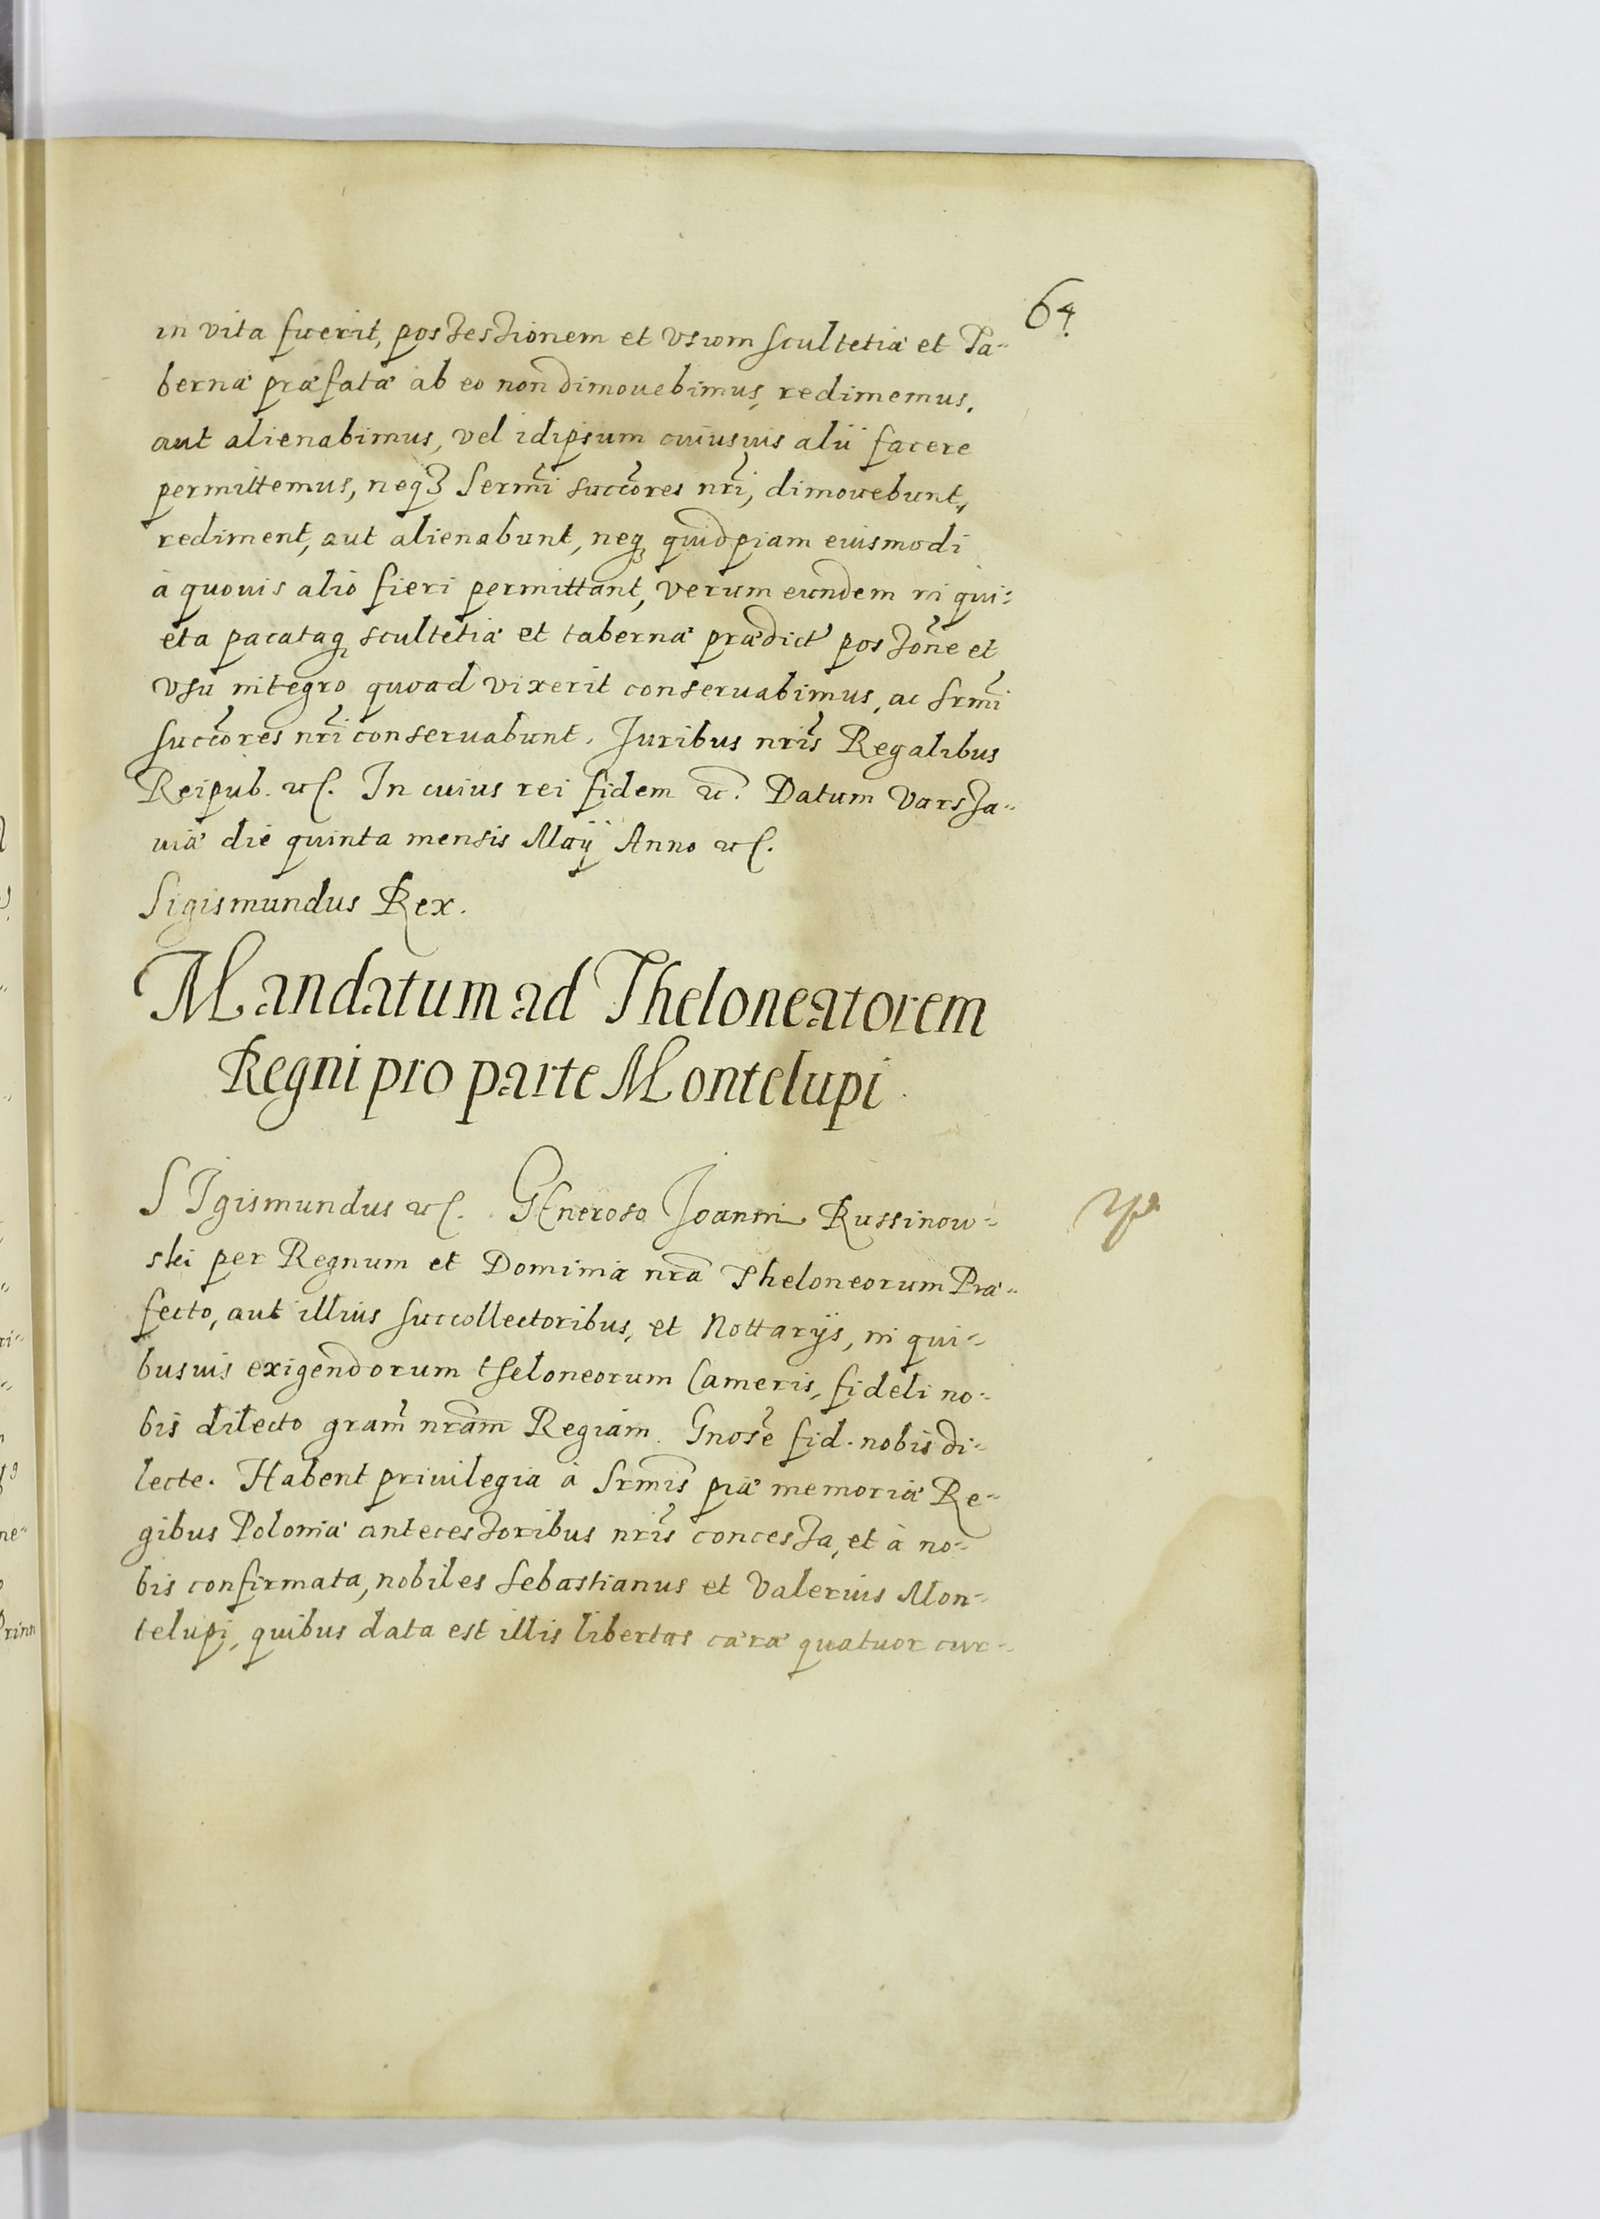 64
in vita fuerit, possessionem et vsum scultetiæ et Ta-
bernæ præfatæ ab eo non dimouebimus, redimemus,
aut alienabimus, vel idipsum cuiusuis alii facere
permittemus, neqꝫ Sermi succores nri, dimouebunt,
rediment, aut alienabunt, neqꝫ quidpiam eiusmodi
à quouis alio fieri permittant, verum eundem in qui-
eta pacataqꝫ scultetiæ et tabernæ prædict possone et
vsu integro quoad vixerit conseruabimus, ac Srmi
succores nri conseruabunt. Juribus nris Regalibus
Reipub. etc. In cuius rei fidem etc. Datum Varssa-
uiæ die quinta mensis Maij Anno etc.
Sigismundus Rex.
Mandatum ad Theloneatorem
Regni pro parte Montelupi
SIgismundus etc. GEneroso Joanni Russinow-
ski per Regnum et Dominia nra Theloneorum Præ-
fecto, aut illius succollectoribus, et Nottarijs, in qui-
busuis exigendorum theloneorum Cameris, fideli no-
bis dilecto gram nram Regiam. Gnose fid. nobis di-
lecte. Habent priuilegia à Srmis piæ memoriæ Re-
gibus Poloniæ antecessoribus nris concessa, et à no-
bis confirmata, nobiles Sebastianus et Valerius Mon-
telupi, quibus data est illis libertas cæræ quatuor cur-